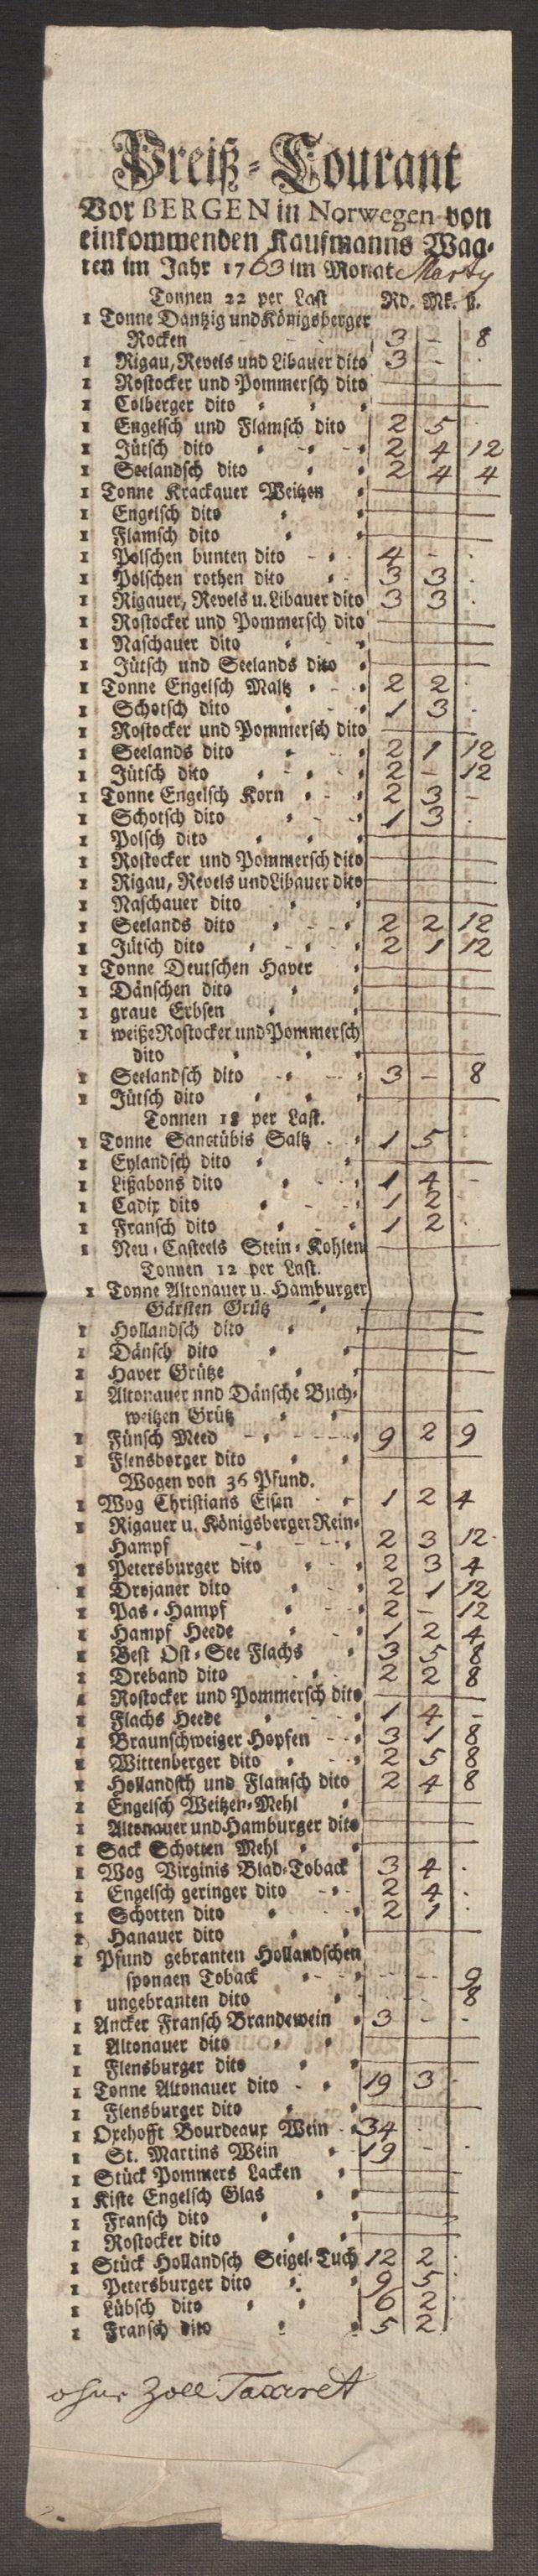 Preiß-Courant
Vor BERGEN in Norwegen von
einkommenden Kaufmanns Waa-
ren im Jahr 1763 im Monat Marty
Tonnen 22 per Last Rd. Mk. ß.
1 Tonne Dantzig und Königsberger
Rocken 3 - 8
1 Rigau, Revels und Libauer dito 3 -
1 Rostocker und Pommersch dito
1 Colberger dito
1 Engelsch und Flamsch dito 2 5
1 Jütsch dito 2 4 12
1 Seelandsch dito 2 4 4
1 Tonne Krackauer Weitzen
1 Engelsch dito
1 Flamsch dito
1 Polschen bunten dito 4 -
1 Polschen rothen dito 3 3
1 Rigauer, Revels u. Libauer dito 3 3
1 Rostocker und Pommersch dito
1 Naschauer dito
1 Jütsch und Seelands dito
1 Tonne Engelsch Maltz 2 2
1 Schotsch dito 1 3
1 Rostocker und Pommersch dito
1 Seelands dito 2 1 12
1 Jütsch dito 2 - 12
1 Tonne Engelsch Korn 2 3 -
1 Schotsch dito 1 3
1 Polsch dito
1 Rostocker und Pommersch dito
1 Rigau, Revels und Libauer dito
1 Naschauer dito
1 Seelands dito 2 2 12
1 Jütsch dito 2 1 12
1 Tonne Deutschen Haver
1 Dänschen dito
1 graue Erbsen
1 weiße Rostocker und Pommersch
dito
1 Seelandsch dito 3 - 8
1 Jütsch dito
Tonnen 18 per Last.
1 Tonne Sanctübis Saltz 1 5
1 Eylandsch dito
1 Lißabons dito 1 4 -
1 Cadix dito 1 2
1 Fransch dito 1 2
1 Neu-Casteels Stein-Kohlen
Tonnen 12 per Last.
1 Tonne Altonauer u. Hamburger
Gärsten Grütz
1 Hollandsch dito
1 Dänsch dito
1 Haver Grütze
1 Altonauer und Dänsche Buch-
weitzen Grütz
1 Fünsch Meed 9 2 9
1 Flensborger dito
Wogen von 36 Pfund.
1 Wog Christians Eisen 1 2 4
1 Rigauer u. Königsberger Rein-
Hampf 2 3 12
1 Petersburger dito 2 3 4
1 Drojaner dito 2 1 12
1 Pas-Hampf 2 - 12
1 Hampf Heede 1 2 4
1 Best Ost-See Flachs 3 5 8
1 Dreband dito 2 2 8
1 Rostocker und Pommersch dito
1 Flachs Heede 1 4 -
1 Braunschweiger Hopfen 3 1 8
1 Wittenberger dito 2 5 8
1 Hollandsch und Flamsch dito 2 4 8
1 Engelsch Weitzen-Mehl
1 Altonauer und Hamburger dito
1 Sack Schotten Mehl
1 Wog Virginis Blad-Toback 3 4
1 Engelsch geringer dito 2 4
1 Schotten dito 2 1
1 Hanauer dito
1 Pfund gebranten Hollandschen
sponnen Toback - - 9
1 ungebranten dito - - 8
1 Ancker Fransch Brandewein 3 - -
1 Altonauer dito
1 Flensburger dito
1 Tonne Altonauer dito 19 3
1 Flensburger dito
1 Oxehofft Bourdeaux Wein 34
1 St. Martins Wein 19 -
1 Stück Pommers Lacken
1 Kiste Engelsch Glas
1 Fransch dito
1 Rostocker dito
1 Stück Hollandsch Seigel-Tuch 12 2
1 Petersburger dito 9 5
1 Lübsch dito 6 2
1 Fransch dito 5 2
ohne Zoll Taxiret